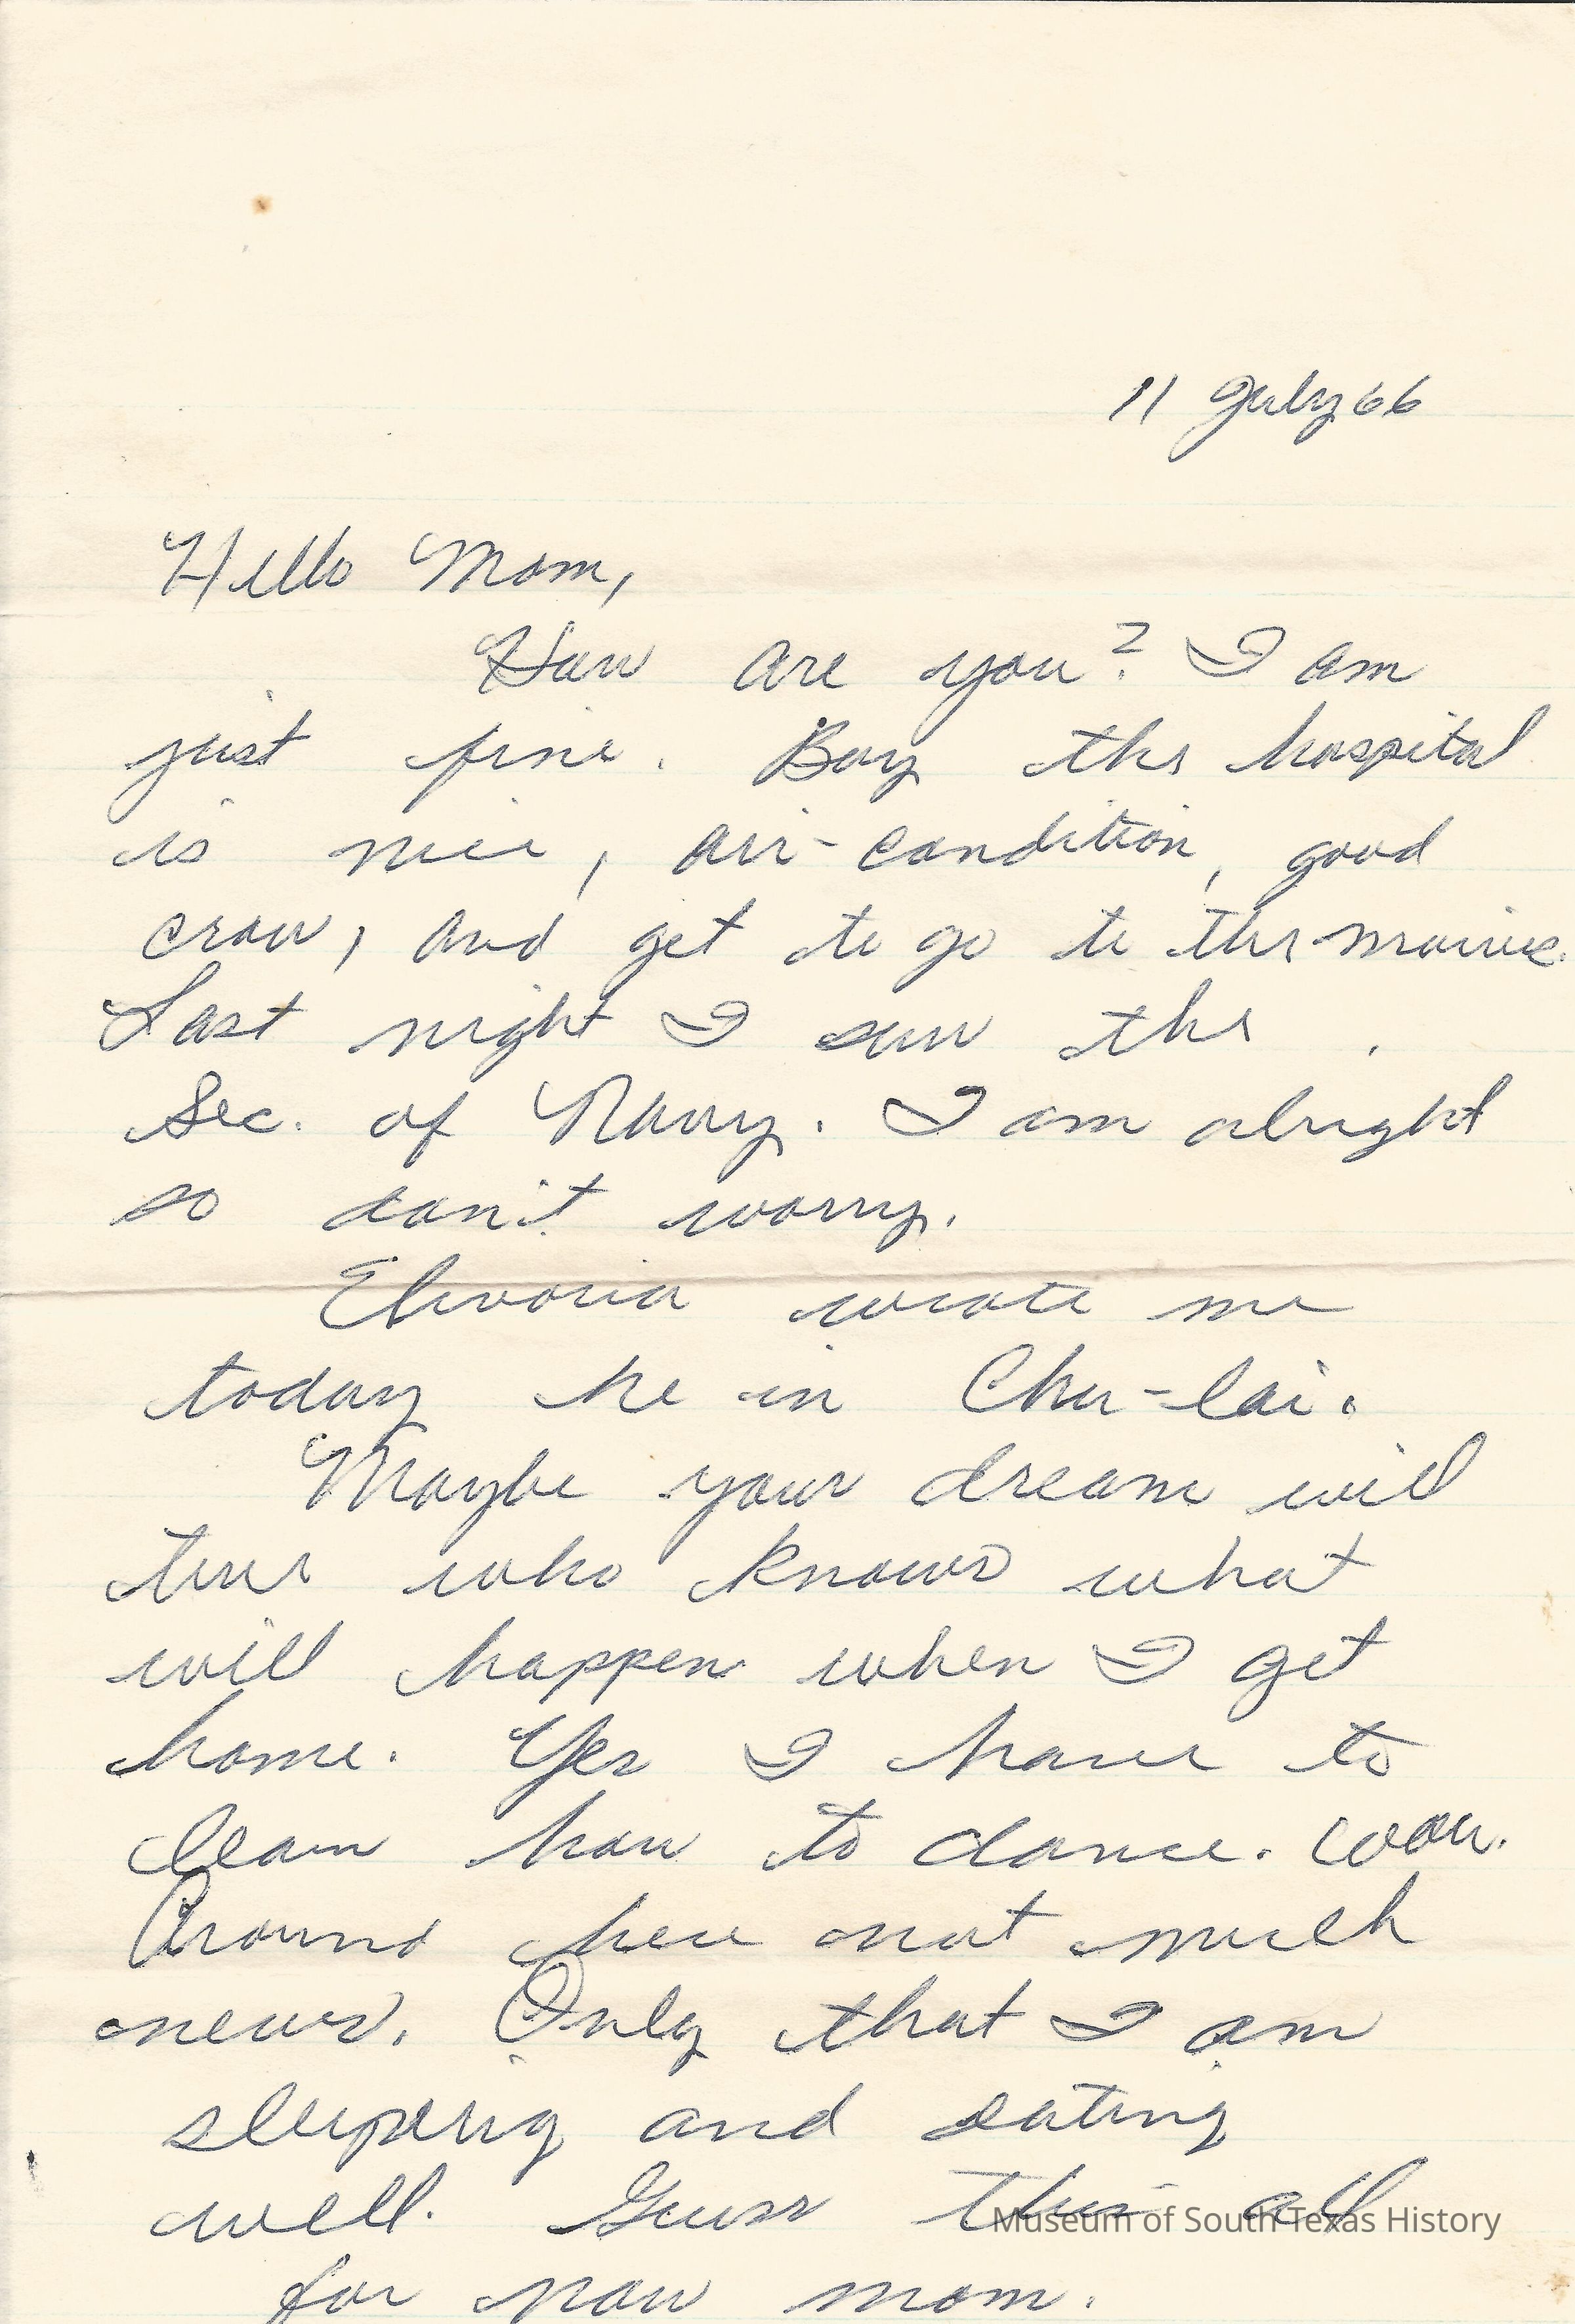 11 July 66
Hello Mom,
How are you? I am
just fine. Boy the hospital
is nice, air-condition, good
crow, and get to go to the movie.
Last night I saw the
Sec. of Navy. I am alright
so don't worry.
wrote me
today he in Chu-lai.
Maybe your dream will
true who knows what
will happen when I get
home. Yes I have to
learn how to dance. Wow.
Around here not much
news. Only that I am
sleeping and eating
well. Guess this all
for now mom.
Museum of South Texas History